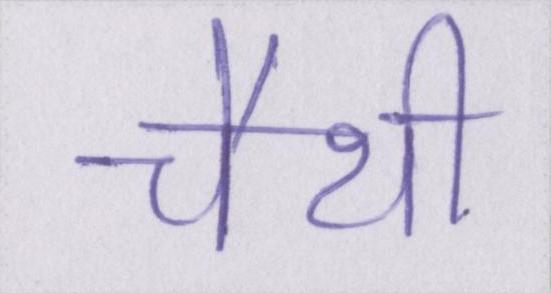 चैथी